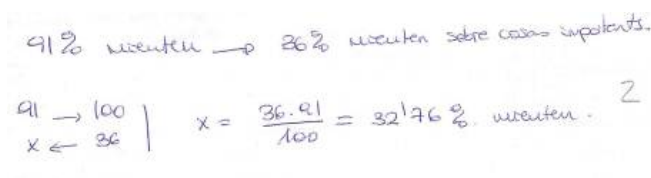 91% mienten → 36% mienten sobre cosas importants.
91 → 100
x ← 36
x = 36·91 / 100 = 32'76% mienten. 2